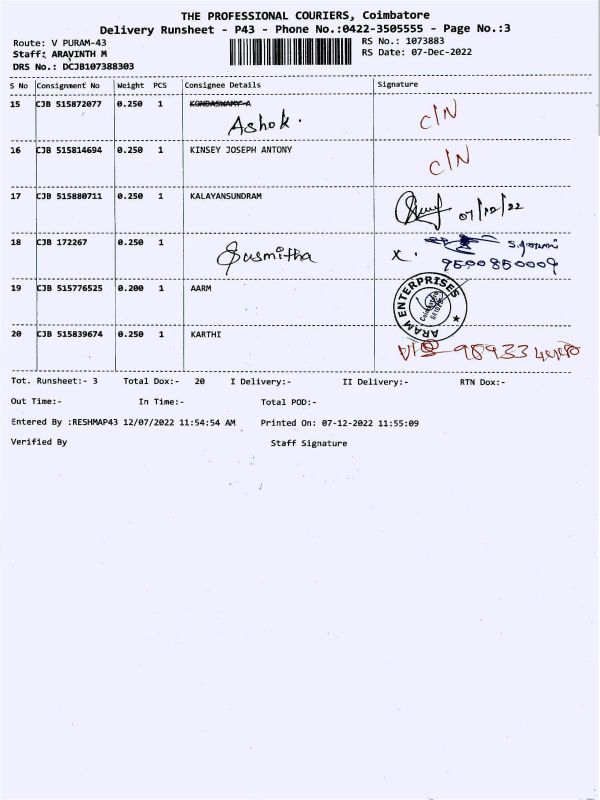 THE PROFESSIONAL COURIERS, Coimbatore
Delivery Runsheet - P43 - Phone No.:0422-3505555 - Page No.:3
Route: V PURAM-43 RS No.: 1073883
Staff: ARAVINTH M RS Date: 07-Dec-2022
DRS No.: DCJB107388303
S No Consignment No Weight PCS Consignee Details Signature
15 CJB 515872077 0.250 1 KONDASWAMY A
Ashok. C/N
16 CJB 515814694 0.250 1 KINSEY JOSEPH ANTONY
C/N
17 CJB 515880711 0.250 1 KALAYANSUNDRAM
07/12/22
18 CJB 172267 0.250 1
Susmitha x.
9500850009
19 CJB 515776525 0.200 1 AARM
ARAM ENTERPRISES
20 CJB 515839674 0.250 1 KARTHI
Tot. Runsheet:- 3 Total Dox:- 20 I Delivery:- II Delivery:- RTN Dox:-
Out Time:- In Time:- Total POD:-
Entered By :RESHMAP43 12/07/2022 11:54:54 AM Printed On: 07-12-2022 11:55:09
Verified By Staff Signature